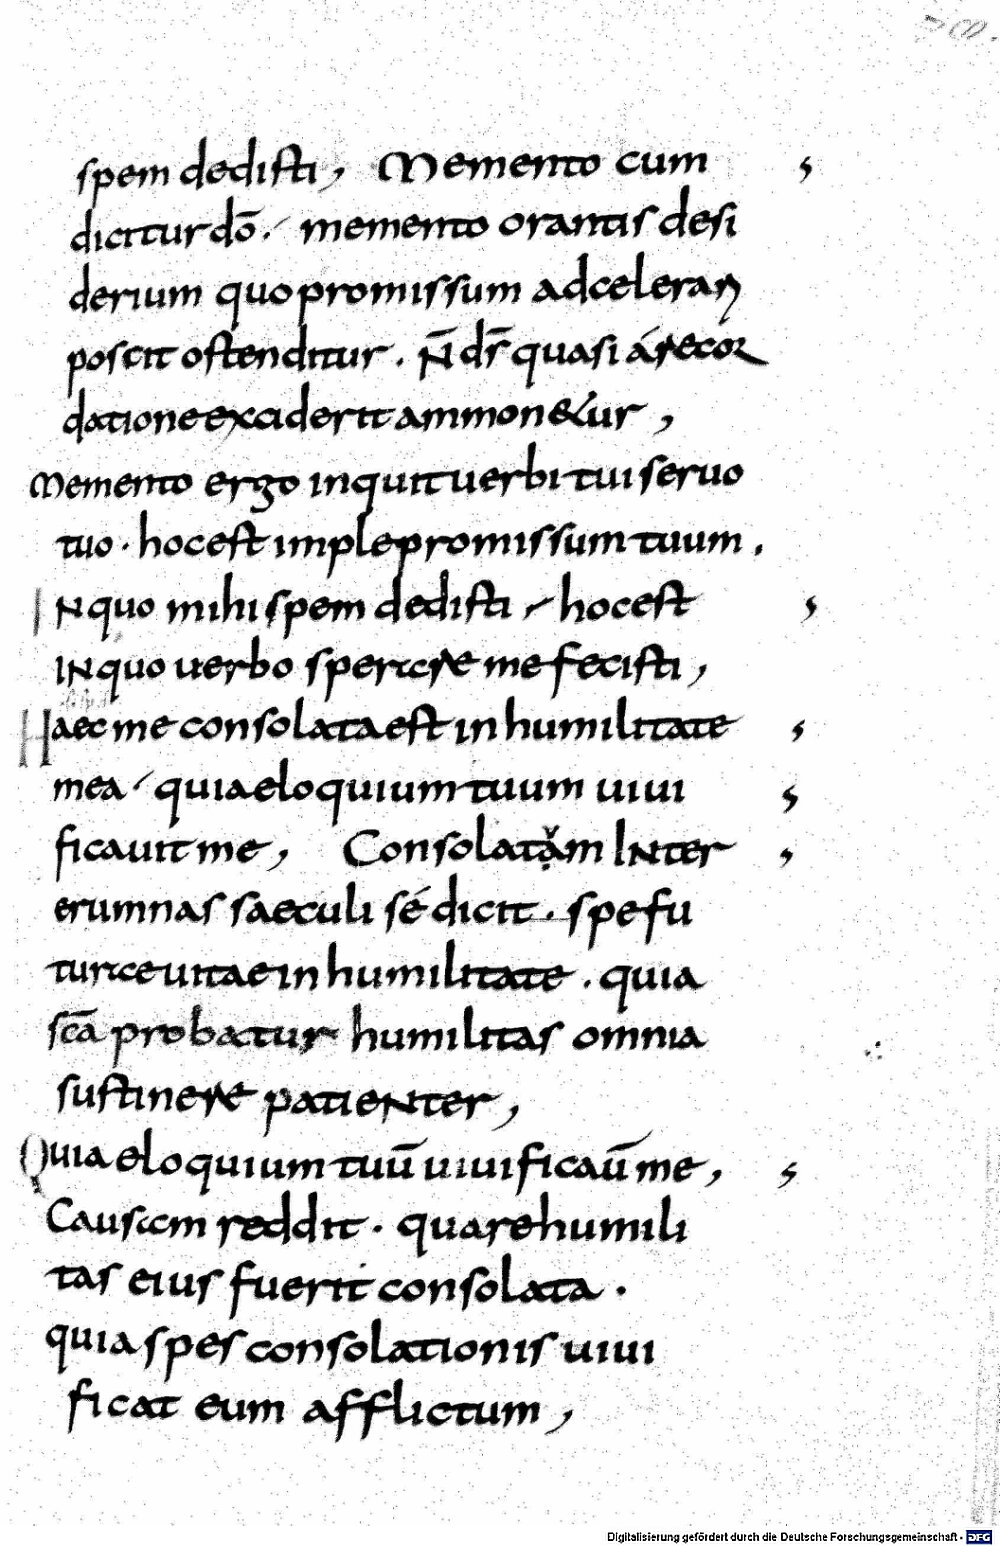 spem dedisti, Memento cum
dicitur dõ. memento orantis desi
derium quo promissum adcelerari
poscit ostenditur. N̄ dr̄ quasi á recor
datione exciderit ammonetur,
Memento ergo inquit uerbi tui seruo
tuo. hoc est imple promissum tuum.
IN quo mihi spem dedisti hoc est
IN quo uerbo sperare me fecisti,
Haec me consolata est in humilitate
mea quia eloquium tuum uiui
ficauit me, Consolatam INter
erumnas saeculi sé dicit. spe fu
turae uitae in humilitate. quia
scā probatur humilitas omnia
sustinere patieNter,
Quia eloquium tuū uiuificaū me,
Causam reddit. quare humili
tas eius fuerit consolata.
quia spes consolationis uiui
ficat eum afflictum,
Digitalisierung gefördert durch die Deutsche Forschungsgemeinschaft - DFG